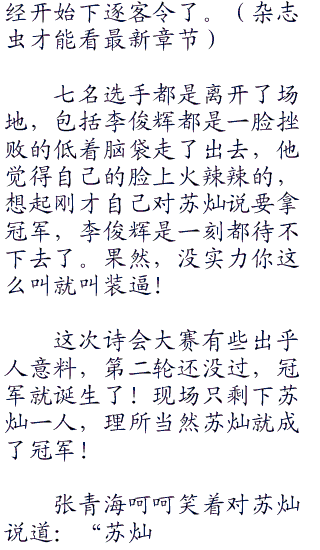 经开始下逐客令了。（杂志
虫才能看最新章节）
七名选手都是离开了场
地，包括李俊辉都是一脸挫
败的低着脑袋走了出去，他
觉得自己的脸上火辣辣的，
想起刚才自己对苏灿说要拿
冠军，李俊辉是一刻都待不
下去了。果然，没实力你这
么叫就叫装逼！
这次诗会大赛有些出乎
人意料，第二轮还没过，冠
军就诞生了！现场只剩下苏
灿一人，理所当然苏灿就成
了冠军！
张青海呵呵笑着对苏灿
说道：“苏灿